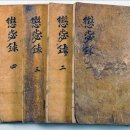 懲毖錄
懲毖錄 二
懲毖錄 三
懲毖錄 四